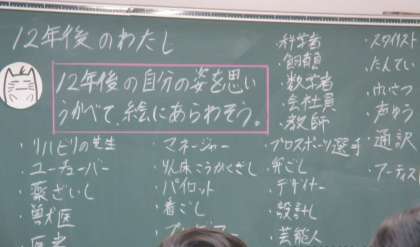 12年後のわたし
12年後の自分の姿を思い
うかべて、絵にあらわそう。
・リハビリの先生
・ユーチューバー
・薬ざいし
・獣医
・マネージャー
・りん床こうかくぎし
・パイロット
・着ごし
・科学者
・飼育員
・数学者
・会社員
・教師
・プロスポーツ選手
・弁ごし
・デザイナー
・設計し
・芸能人
・スタイリスト
・たんてい
・けいさつ
・声ゆう
・通訳
・アーティスト